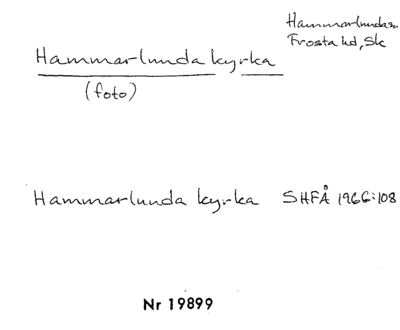 Hammarlunda sn
Frosta hd, Sk
Hammarlunda kyrka
(foto)
Hammarlunda kyrka SHFÅ 1966:108
Nr 19899